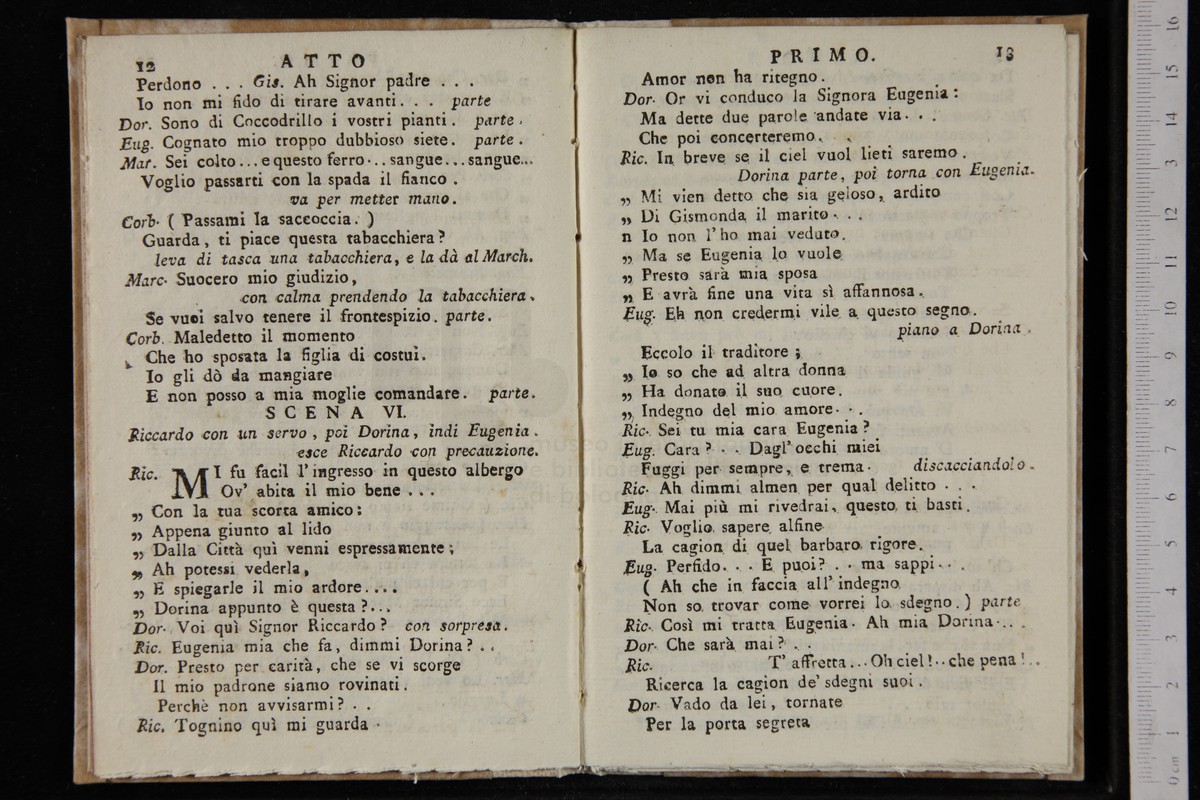 12 ATTO
Perdono . . . Gis. Ah Signor padre . . .
Io non mi fido di tirare avanti. . . parte
Dor. Sono di Coccodrillo i vostri pianti. parte.
Eug. Cognato mio troppo dubbioso siete. parte.
Mar. Sei colto... e questo ferro... sangue... sangue...
Voglio passarti con la spada il fianco .
va per metter mano.
Corb. ( Passami la saccoccia. )
Guarda, ti piace questa tabacchiera?
leva di tasca una tabacchiera, e la dà al March.
Marc. Suocero mio giudizio,
con calma prendendo la tabacchiera.
Se vuoi salvo tenere il frontespizio. parte.
Corb. Maledetto il momento
Che ho sposata la figlia di costui.
Io gli dò da mangiare
E non posso a mia moglie comandare. parte.
SCENA VI.
Riccardo con un servo, poi Dorina, indi Eugenia.
esce Riccardo con precauzione.
Ric. MI fu facil l'ingresso in questo albergo
Ov' abita il mio bene ...
„ Con la tua scorta amico:
„ Appena giunto al lido
„ Dalla Città quì venni espressamente;
„ Ah potessi vederla,
„ E spiegarle il mio ardore....
„ Dorina appunto è questa?...
Dor. Voi quì Signor Riccardo? con sorpresa.
Ric. Eugenia mia che fa, dimmi Dorina? . .
Dor. Presto per carità, che se vi scorge
Il mio padrone siamo rovinati.
Perchè non avvisarmi? . .
Ric. Tognino quì mi guarda .
PRIMO. 13
Amor non ha ritegno.
Dor. Or vi conduco la Signora Eugenia:
Ma dette due parole andate via. . .
Che poi concerteremo.
Ric. In breve se il ciel vuol lieti saremo.
Dorina parte, poi torna con Eugenia.
„ Mi vien detto che sia geloso, ardito
„ Di Gismonda il marito. . .
n Io non l'ho mai veduto.
„ Ma se Eugenia lo vuole
„ Presto sarà mia sposa
„ E avrà fine una vita sì affannosa.
Eug. Eh non credermi vile a questo segno.
piano a Dorina.
Eccolo il traditore;
„ Io so che ad altra donna
„ Ha donato il suo cuore.
„ Indegno del mio amore. . .
Ric. Sei tu mia cara Eugenia?
Eug. Cara? . . Dagl' occhi miei
Fuggi per sempre, e trema. discacciandolo.
Ric. Ah dimmi almen per qual delitto . . .
Eug. Mai più mi rivedrai, questo ti basti.
Ric. Voglio sapere alfine
La cagion di quel barbaro rigore.
Eug. Perfido. . . E puoi? . . ma sappi. . .
( Ah che in faccia all' indegno
Non so trovar come vorrei lo sdegno. ) parte
Ric. Così mi tratta Eugenia. Ah mia Dorina. . .
Dor. Che sarà mai? . .
Ric. T' affretta... Oh ciel!.. che pena! . .
Ricerca la cagion de' sdegni suoi.
Dor. Vado da lei, tornate
Per la porta segreta